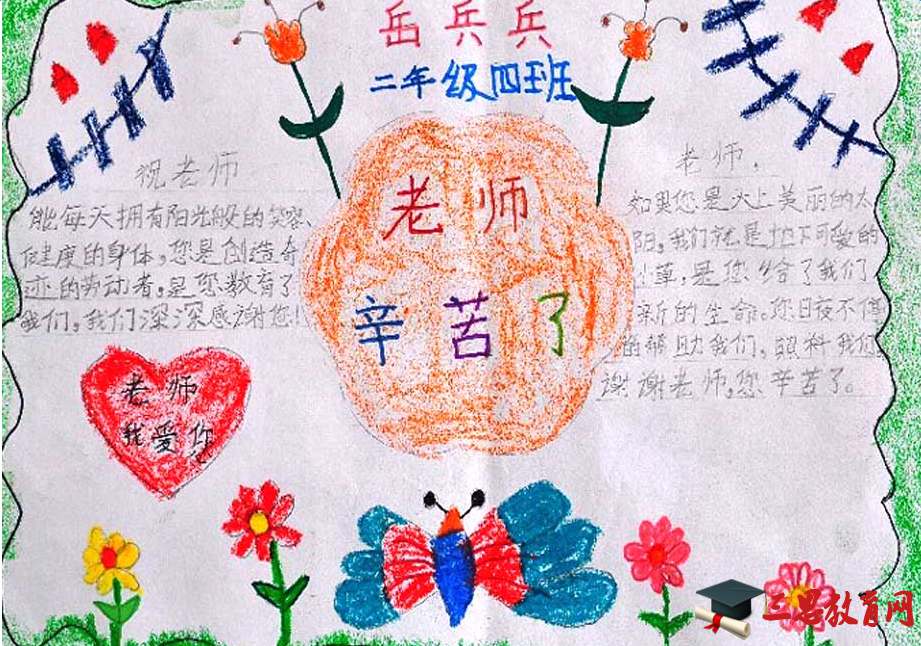 岳兵兵
二年级四班
老师
辛苦了
祝老师
能每天拥有阳光般的笑容、
健康的身体,您是创造奇
迹的劳动者,是您教育了
我们,我们深深感谢您!
老师
我爱你
老师.
如果您是天上美丽的太
阳,我们就是地下可爱的
小草,是您给了我们
新的生命。您日夜不停
的帮助我们,照料我们
谢谢老师,您辛苦了。
三思教育网